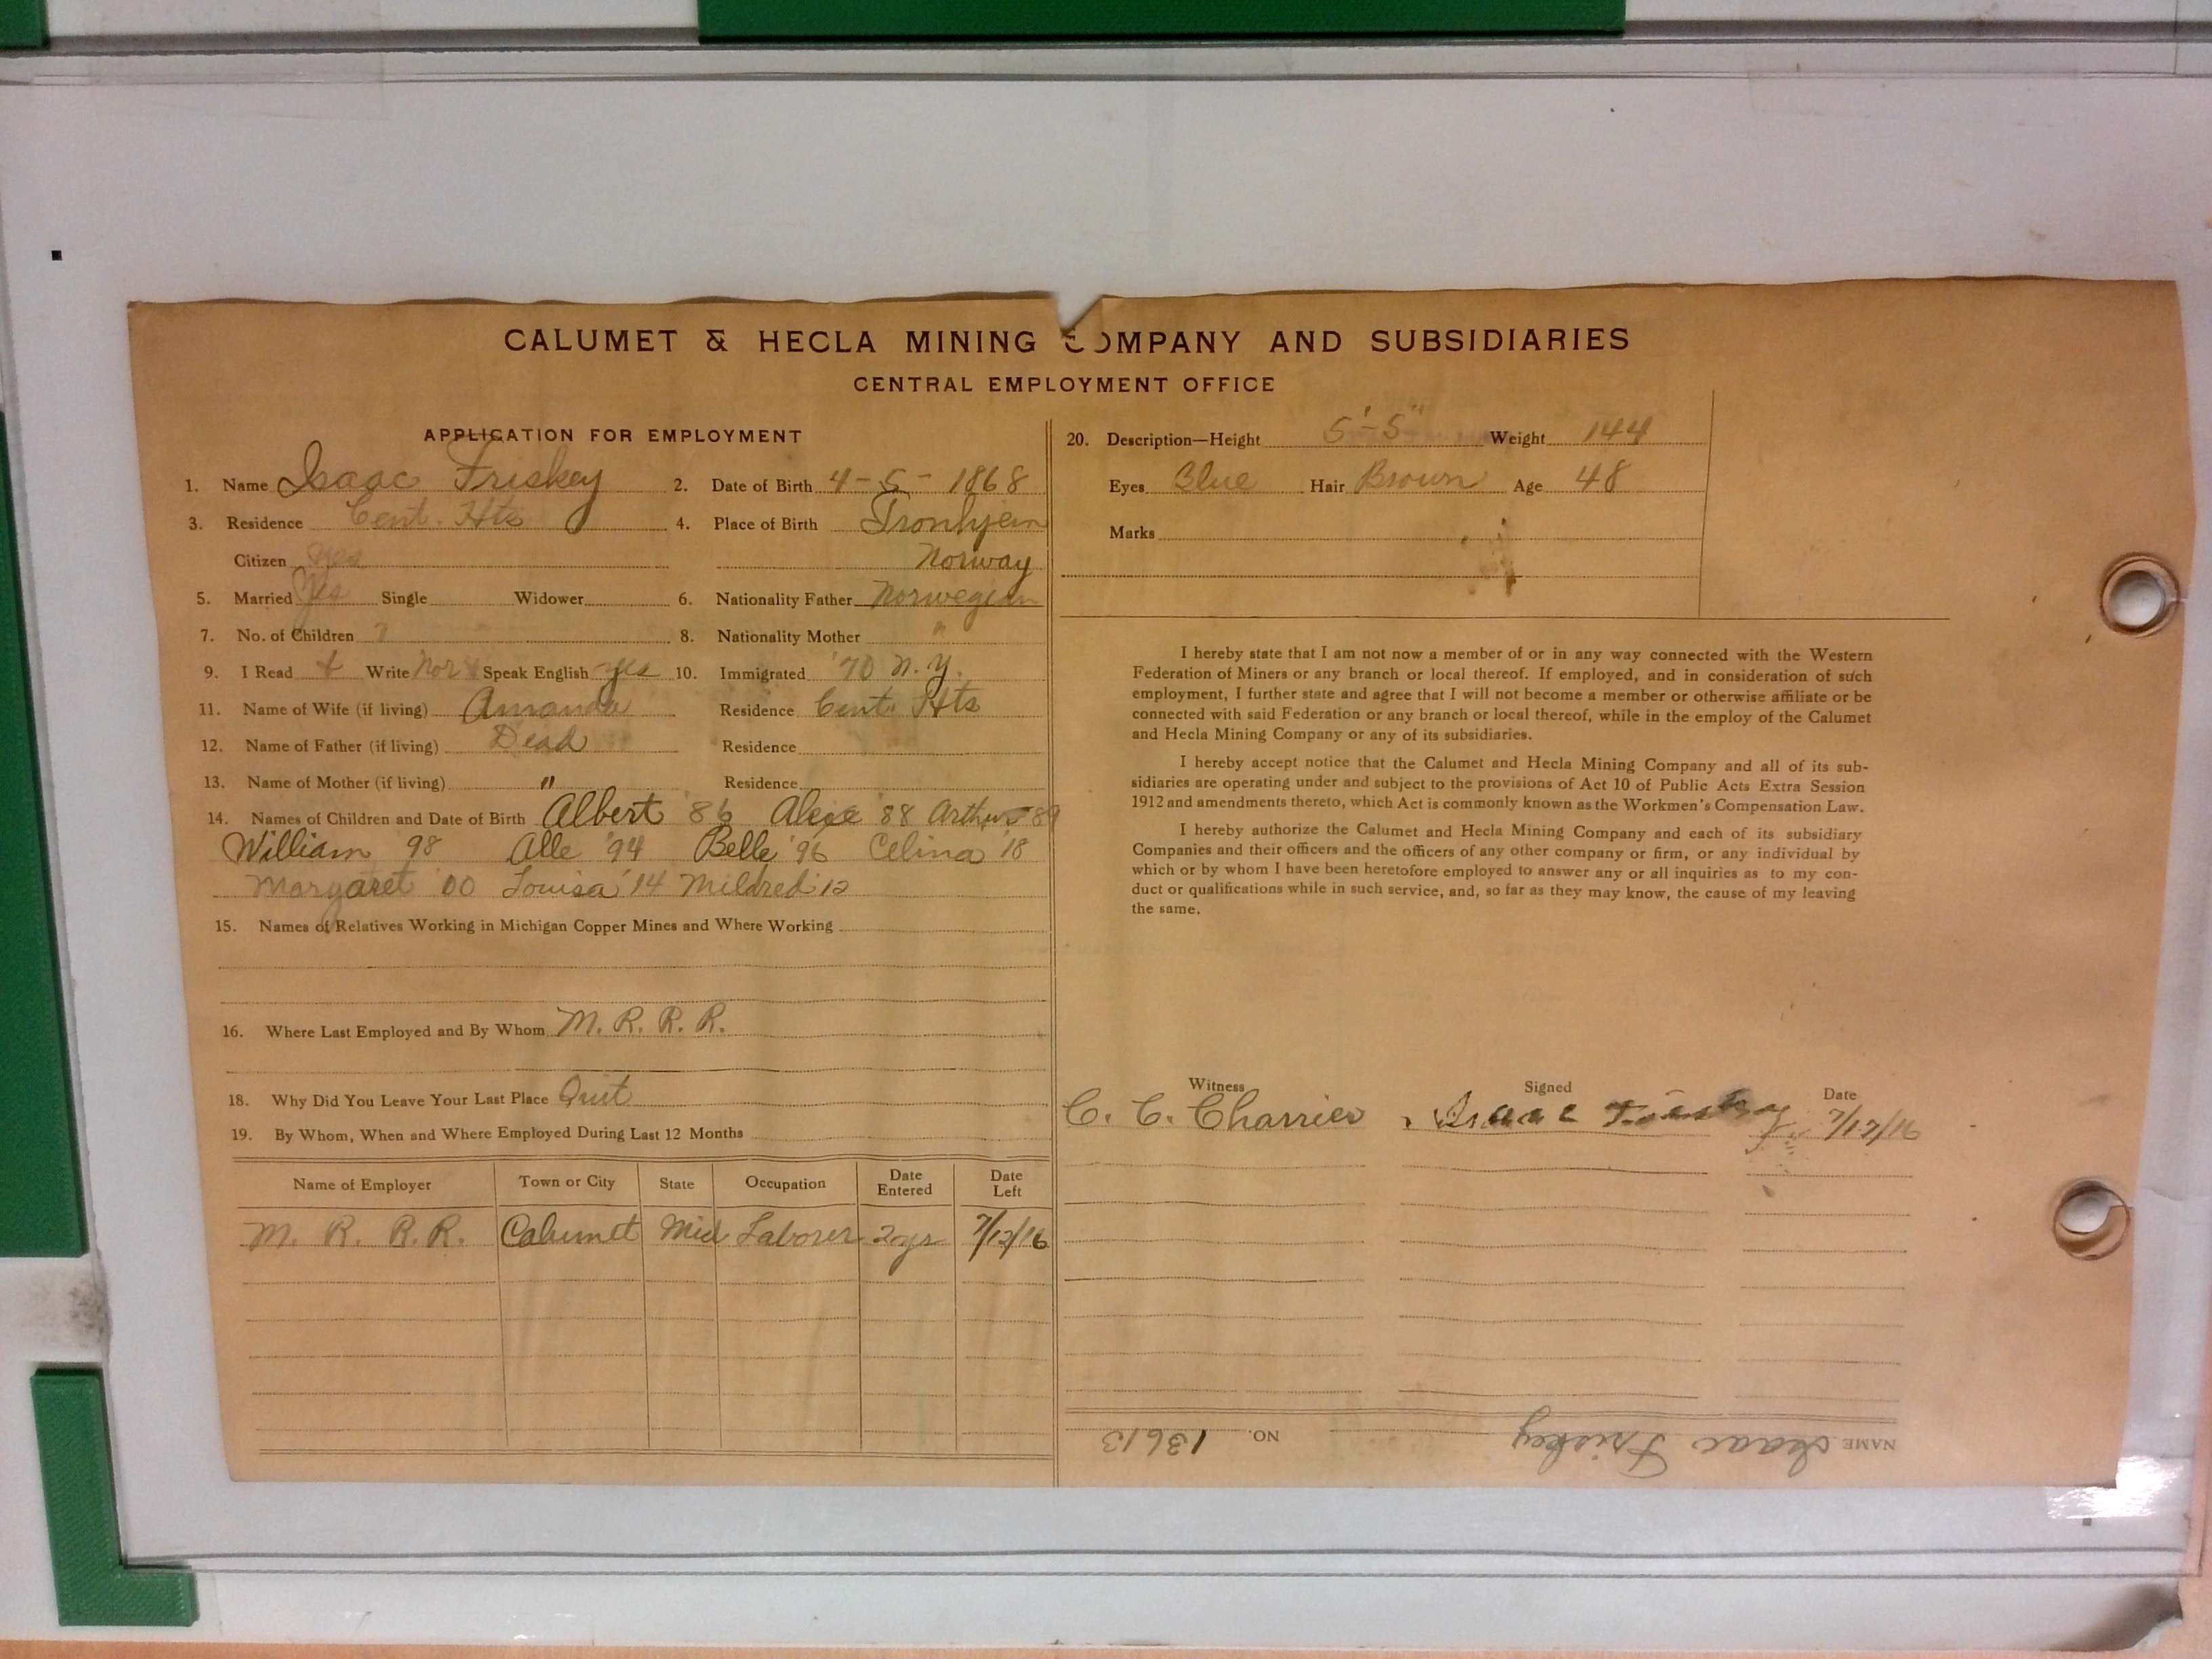 CALUMET & HECLA MINING COMPANY AND SUBSIDIARIES
CENTRAL EMPLOYMENT OFFICE
APPLICATION FOR EMPLOYMENT
1. Name Isaac Friskey 2. Date of Birth 4-5-1868
3. Residence Cent. Hts 4. Place of Birth Tronhjem
Citizen Yes Norway
5. Married Yes Single Widower 6. Nationality Father Norwegian
7. No. of Children 7 8. Nationality Mother "
9. I Read & Write Nor & Speak English yes 10. Immigrated '70 N.Y.
11. Name of Wife (if living) Amanda Residence Cent. Hts
12. Name of Father (if living) Dead Residence
13. Name of Mother (if living) " Residence
14. Names of Children and Date of Birth Albert '86 '88 Arthur 89
William 98 Alle '94 Belle '96 Celina '18
Margaret '00 Louisa '14 Mildred '12
15. Names of Relatives Working in Michigan Copper Mines and Where Working
16. Where Last Employed and By Whom M. R. R. R.
18. Why Did You Leave Your Last Place Quit
19. By Whom, When and Where Employed During Last 12 Months
Name of Employer Town or City State Occupation Date Entered Date Left
M. R. R.R. Calumet Mich Laborer 2 yrs 7/12/16
20. Description—Height 5'-5" Weight 144
Eyes Blue Hair Brown Age 48
Marks
I hereby state that I am not now a member of or in any way connected with the Western
Federation of Miners or any branch or local thereof. If employed, and in consideration of such
employment, I further state and agree that I will not become a member or otherwise affiliate or be
connected with said Federation or any branch or local thereof, while in the employ of the Calumet
and Hecla Mining Company or any of its subsidiaries.
I hereby accept notice that the Calumet and Hecla Mining Company and all of its sub-
sidiaries are operating under and subject to the provisions of Act 10 of Public Acts Extra Session
1912 and amendments thereto, which Act is commonly known as the Workmen's Compensation Law.
I hereby authorize the Calumet and Hecla Mining Company and each of its subsidiary
Companies and their officers and the officers of any other company or firm, or any individual by
which or by whom I have been heretofore employed to answer any or all inquiries as to my con-
duct or qualifications while in such service, and, so far as they may know, the cause of my leaving
the same.
Witness Signed Date
C. C. Charrier Isaac Friskey 7/17/16
NAME Isaac Friskey NO. 13613